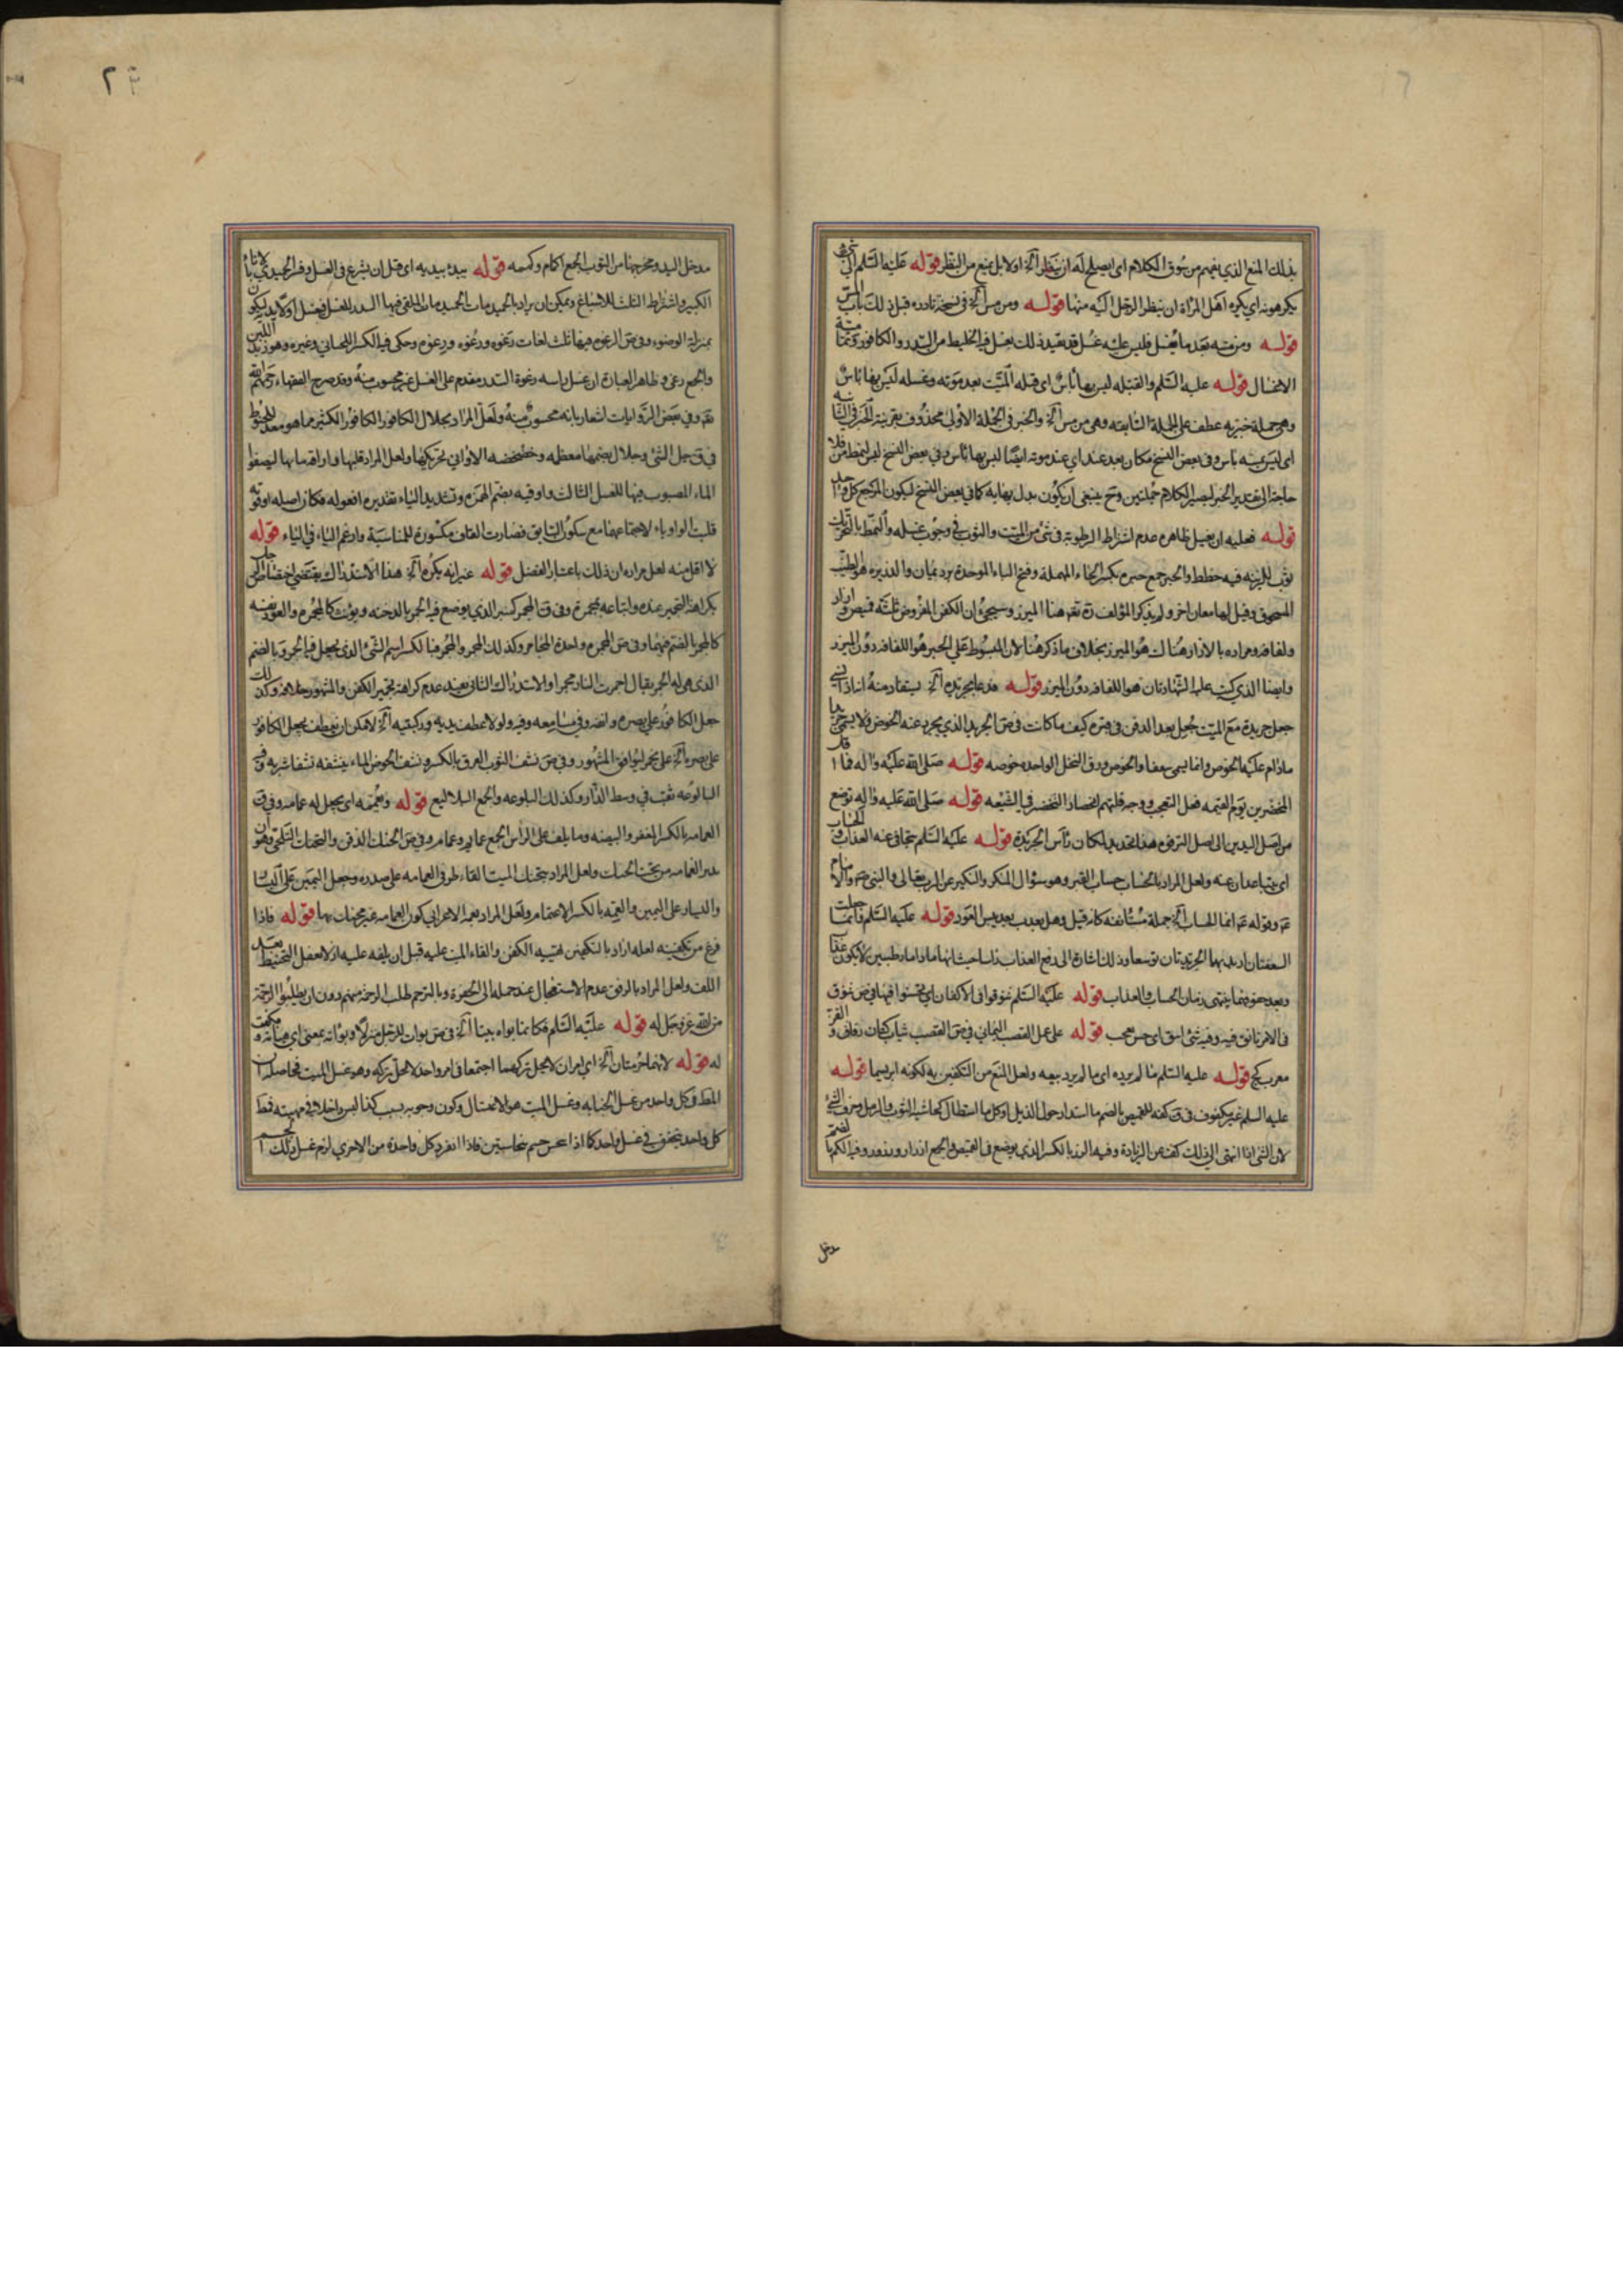 بذلك المنع الذي يفهم من سوق الكلام اي ايصلح له ان ينظر الخ اولا بل يمنع من النظر قوله عليه السلم
يكرهونه اي يكره اهل المراة ان ينظر الرجل اليه منها قوله ومن مس الخ في نسخة نادره قبل ذلك باب المس
قوله ومن مسه بعد ما يغسل فليس عليه غسل قد يقيد ذلك بغسل فيه الخليط من السدر والكافور
الاغسال قوله عليه السلم والقبلة ليس بها باس اي قبلة الميت بعد موته وغسله ليس بها باس
وهي جملة خبريه عطف على الجملة السابقه وهي من مس الخ والخبر في الجملة الاولى محذوف بقرينة الخبر في الثانية
اي ليس به باس وفي بعض النسخ مكان بعد عند اي عند موته ايضا ليس بها باس وفي بعض النسخ ليس لفظ من فلا
حاجة الى تقدير الخبر ليصير الكلام جملتين وح ينبغي ان يكون بدل بها به كما في بعض النسخ ليكون المرجع كل واحد
قوله فعليه ان يغسل ظاهره عدم اشتراط الرطوبة في شئ من الميت والثوب في وجوب غسله والنمط بالتحريك
ثوب للزينة فيه خطط والحبر جمع حبره بكسر الحاء المهملة وفتح الباء الموحدة برد يمان والذريره هو الطيب
المسحوق وقيل لها معان اخر ولم يذكر المؤلف ره تعم هنا الميزر وسيجئ ان الكفن المفروض ثلثه قميص وازار
ولفافه ومراده بالازار هناك هو الميزر بخلاف ما ذكر هنا لان المبسوط على الحبر هو اللفافه دون الميزر
وايضا الذي كتب عليه الشهادتان هو اللفافه دون الميزر قوله فدعا بجريده الخ يستفاد منه انه اذا نسي
جعل جريدة مع الميت يجعل بعد الدفن في قبره كيف ما كانت في ص الجريد الذي يجرد عنه الخوص فلا يسمى جريدا
مادام عليه الخوص وانما يسمى سعفا والخوص ورق النخل الواحده خوصه قوله صلى الله عليه واله فما اقل
المتخضرين يوم القيمه فعل التعجب ووجه قلتهم اختصاص التخضر في الشيعه قوله صلى الله عليه واله توضع
من اصل اليدين الى اصل الترقوه هذا تحديد لمكان راس الجريدة قوله عليه السلم يتجافى عنه العذاب
اي يتباعدان عنه ولعل المراد بالحساب حساب القبر وهو سؤال المنكر والنكير عن الرب تعالى والنبي ص والامام
ع وقوله ع انما الحساب الخ جملة مستانفه كانه قيل وهل يعذب بعد يبس العود قوله عليه السلم فانما جعلت
السعفتان اريد بهما الجريدتان توسعا وذلك اشارة الى رفع العذاب
وبعد جفوفهما ينتهي زمان الحساب والعذاب قوله عليه السلم تنوقوا في الاكفان اي تحسنوا فيها في ص تنوق
في الامر تانق فيه وفيه شئ انيق اي حسن معجب قوله على عمل القصب اليماني في ص القصب ثياب كتان رقاق
معرب كج قوله عليه السلم ما لم يرده اي ما لم يرد بيعه ولعل المنع من التكفين به لكونه ابريسما قوله
عليه السلم غير مكفوف في ق كفه للقميص بالضم ما استدار حول الذيل او كل ما استطال كحاشية الثوب والرمل وحرف الشئ
لان الشئ اذا انتهى الى ذلك كف عن الزيادة وفيه الزر بالكسر الذي يوضع في القميص والجمع ازرار وزرور وفيه الكم بالضم
مدخل
٢٣
مدخل اليد ومخرجها من الثوب الجمع اكمام وكممه قوله يبدء بيديه اي قبل ان يشرع في الغسل
الكبير واشتراط الثلث للاسباغ ويمكن ان يراد بالحميديات الملقى فيها السدر للغسل فيغسل اولا يديه ليكون
بمنزلة الوضوء وفي ص الرغوه فيها ثلث لغات رَغوه ورُغوه ورِغوه وحكى فيه الكسر اللحياني وغيره وهو زبد اللبن
والجمع رغى وظاهر العبارة ان غسل راسه برغوة السدر مقدم على الغسل غير محسوب منه وقد صرح الفقهاء رحمهم الله
نعم وفي بعض الروايات اشعار بانه محسوب منه ولعل المراد بجلال الكافور الكافور الكثير مما هو معد للحنوط
في ق جل الشئ وجلاله بضمهما معظمه وخضخضه الاواني تحريكها ولعل المراد قلبها واراقة مابها ليصفوا
الماء المصبوب فيها للغسل الثالث واوقيه بضم الهمزة وتشديد الياء تقديره افعوله فكان اصله اوقويه
قلبت الواو ياء لاجتماعهما مع سكون السابق فصارت القاف مكسورة للمناسبة وادغم الياء في الياء قوله
لا اقل منه لعل مراده ان ذلك باعتبار الفضل قوله غير انه يكره الخ هذا الاستدراك يقتضي اختصاص
بكراهة التجمير عنده واتباعه بمجمرة وفي ق المجمر كمنبر الذي يوضع فيه الجمر بالدخنه ويؤنث كالمجمره والعود نفسه
كالمجمر بالضم فيهما وفي ص المجمره واحدة المجامر وكذلك المجمر والمجمر فبالكسر اسم الشئ الذي يجعل فيه الجمر وبالضم
الذي هي له الجمر يقال اجمرت النار مجمرا والاستدراك الثاني يفيد عدم كراهة تجمير الكفن والمشهور خلافه وكذلك
جعل الكافور على بصره وانفه وفي مسامعه وفيه ولولا عطف يديه وركبتيه الخ لامكن ان يعطف يجعل الكافور
على بصره الخ على يجمر ليوافق المشهور وفي ص نشف الثوب العرق بالكسر ونشف الحوض الماء ينشفه نشفا شربه وفيه
البالوعه ثقب في وسط الدار وكذلك البلوعه والجمع البلاليع قوله ويعممه اي يجعل له عمامه وفي ق
العمامه بالكسر المغفر والبيضه وما يلف على الراس الجمع عمايم وعمام وفي ص الحنك الذقن والتحنك التلحي وهو ان
تدير العمامه من تحت الحنك ولعل المراد بتحنك الميت القاء طرفي العمامه على صدره وجعل اليمين على اليسار
واليسار على اليمين والعمه بالكسر الاعتمام ولعل المراد بعمة الاعرابي كون العمامه غير محنك بها قوله فاذا
فرغ من تكفينه لعله اراد بالتكفين تهيئة الكفن والقاء الميت عليه قبل ان يلفه عليه اذ لا معنى للتحنيط بعد
اللف ولعل المراد بالرفق عدم الاستعجال عند حمله الى الحفرة وبالترحم طلب الرحمة منهم دون ان يطلبوا الرحمة
من الله عز وجل له قوله عليه السلم فكانما بواه بيتا الخ في ص بوات للرجل منزلا وبواته بمعنى اي هياته ومكنت
له قوله لانهما حرمتان الخ اي امران لا يحل تركهما اجتمعا في امر واحد لا يحل تركه وهو غسل الميت فحاصله ان
المط في كل واحد من غسل الجنابه وغسل الميت هو الاغتسال وكون وجوبه بسبب كذا ليس داخلا في مهيته فقط
كل واحد يتحقق في غسل واحد كما اذا نجس جسم بنجاستين فاذا انفرد كل واحدة من الاخرى لزم غسل ذلك